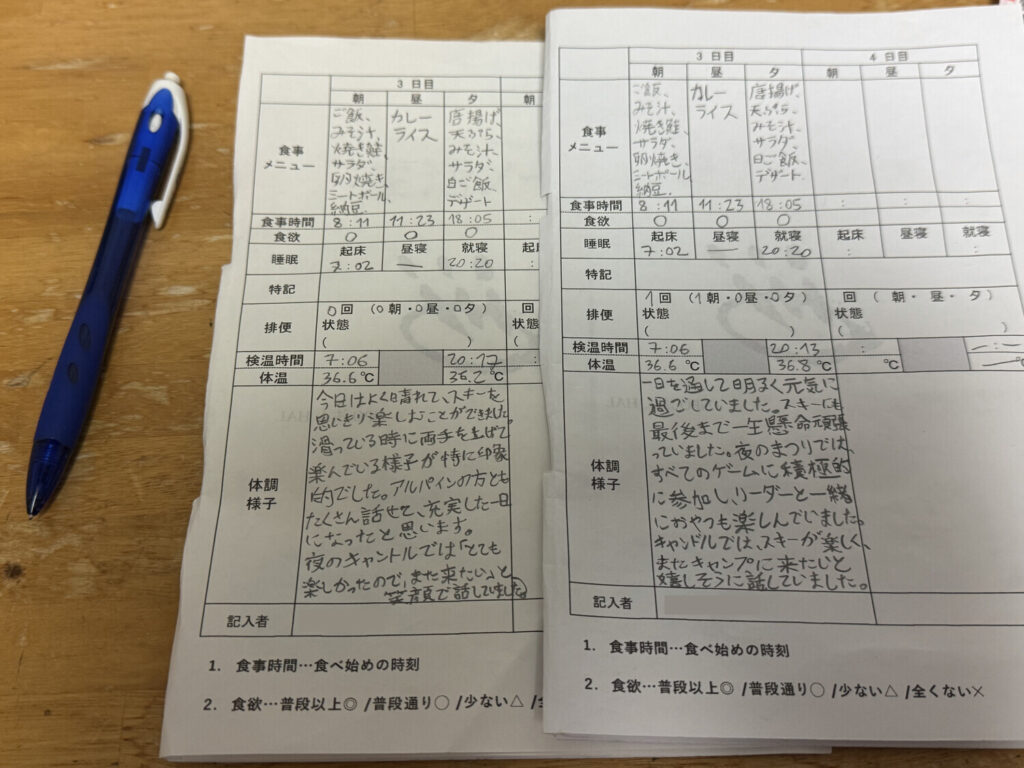 3 日目
朝 昼 夕 朝
食事
メニュー
ご飯、
みそ汁、
焼き鮭、
サラダ、
卵焼き、
ミートボール、
納豆.
カレー
ライス
唐揚げ、
天ぷら、
みそ汁、
サラダ、
白ご飯、
デザート
食事時間 8:11 11:23 18:05 :
食欲 ○ ○ ○
睡眠 起床 昼寝 就寝 起床
7:02 ― 20:20 :
特記
排便 0回 (0朝・0昼・0夕) 回
状態 状態
( ) (
検温時間 7:06 20:17 :
体温 36.6℃ 36.2℃
体調
様子
今日はよく晴れて、スキーを
思いきり楽しむことができました。
滑っている時に両手を上げて
楽んでいる様子が特に印象
的でした。アルパインの方とも
たくさん話せて、充実した一日
になったと思います。
夜のキャンドルでは「とても
楽しかったので、また来たい」と
笑顔で話していました。
記入者
1. 食事時間…食べ始めの時刻
2. 食欲…普段以上◎ /普段通り○ /少ない△ /全
3 日目 4 日目
朝 昼 夕 朝 昼 夕
食事
メニュー
ご飯、
みそ汁、
焼き鮭、
サラダ、
卵焼き、
ミートボール、
納豆.
カレー
ライス
唐揚げ、
天ぷら、
みそ汁、
サラダ、
白ご飯、
デザート.
食事時間 8:11 11:23 18:05 : : :
食欲 ○ ○ ○
睡眠 起床 昼寝 就寝 起床 昼寝 就寝
7:02 ― 20:20 : :
特記
排便 1回 (1朝・0昼・0夕) 回 ( 朝・ 昼・ 夕)
状態 状態
( ) ( )
検温時間 7:06 20:13 : :
体温 36.6℃ 36.8℃ ℃ ℃
体調
様子
一日を通して明るく元気に
過ごしていました。スキーにも
最後まで一生懸命頑張
っていました。夜のまつりでは、
すべてのゲームに積極的
に参加し、リーダーと一緒
におやつも楽しんでいました。
キャンドルでは、スキーが楽しく、
またキャンプに来たいと
嬉しそうに話していました。
記入者
1. 食事時間…食べ始めの時刻
2. 食欲…普段以上◎ /普段通り○ /少ない△ /全くない×